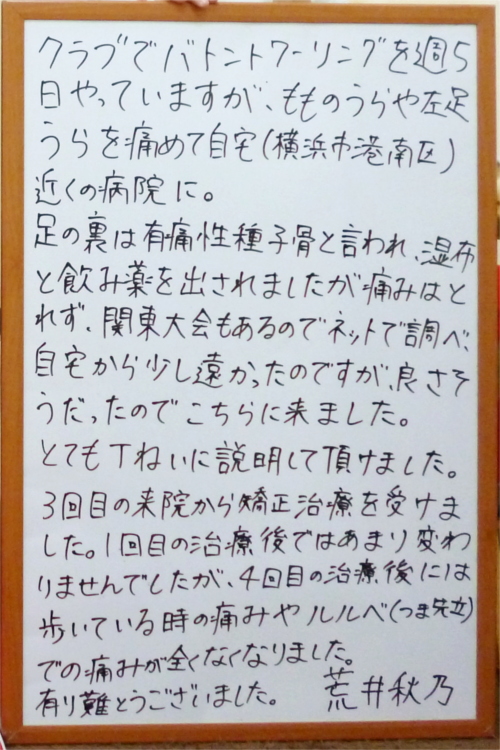 クラブでバトントワーリングを週5
日やっていますが、もものうらや左足
うらを痛めて自宅(横浜市港南区)
近くの病院に。
足の裏は有痛性種子骨と言われ、湿布
と飲み薬を出されましたが痛みはと
れず、関東大会もあるのでネットで調べ、
自宅から少し遠かったのですが、良さそ
うだったのでこちらに来ました。
とても丁ねいに説明して頂けました。
3回目の来院から矯正治療を受けま
した。1回目の治療後ではあまり変わ
りませんでしたが、4回目の治療後には
歩いている時の痛みやルルベ(つま先立)
での痛みが全くなくなりました。
有り難とうございました。 荒井秋乃